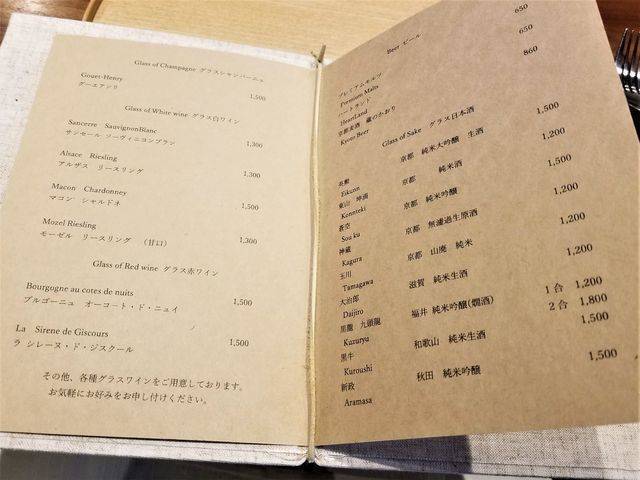 Glass of Champagne グラスシャンパーニュ
Gouet-Henry
グーエアンリ 1,500
Glass of White wine グラス白ワイン
Sancerre SauvignonBlanc
サンセール ソーヴィニヨンブラン 1,300
Alsace Riesling
アルザス リースリング 1,300
Macon Chardonney
マコン シャルドネ 1,500
Mozel Riesling
モーゼル リースリング (甘口) 1,300
Glass of Red wine グラス赤ワイン
Bourgogne au cotes de nuits 1,500
ブルゴーニュ オーコート・ド・ニュイ
La Sirene de Giscours 1,500
ラ シレーヌ・ド・ジスクール
その他、各種グラスワインをご用意しております。
お気軽にお好みをお申し付けください。
Beer ビール
プレミアムモルツ 650
Premium Malts
ハートランド 650
HeartLand
京都麦酒 蔵のかおり 860
Kyoto Beer
Glass of Sake グラス日本酒
英勲 京都 純米大吟醸 生酒 1,500
Eikunn
東山 坤滴 京都 純米酒 1,200
Konnteki
蒼空 京都 純米吟醸 1,500
Sou ku
神蔵 京都 無濾過生原酒 1,200
Kagura
玉川 京都 山廃 純米 1,200
Tamagawa
大治郎 滋賀 純米生酒 1,200
Daijiro
黒龍 九頭龍 福井 純米吟醸(燗酒) 1合 1,200
Kazuryu 2合 1,800
黒牛 和歌山 純米生酒 1,500
Kuroushi
新政 秋田 純米吟醸 1,500
Aramasa